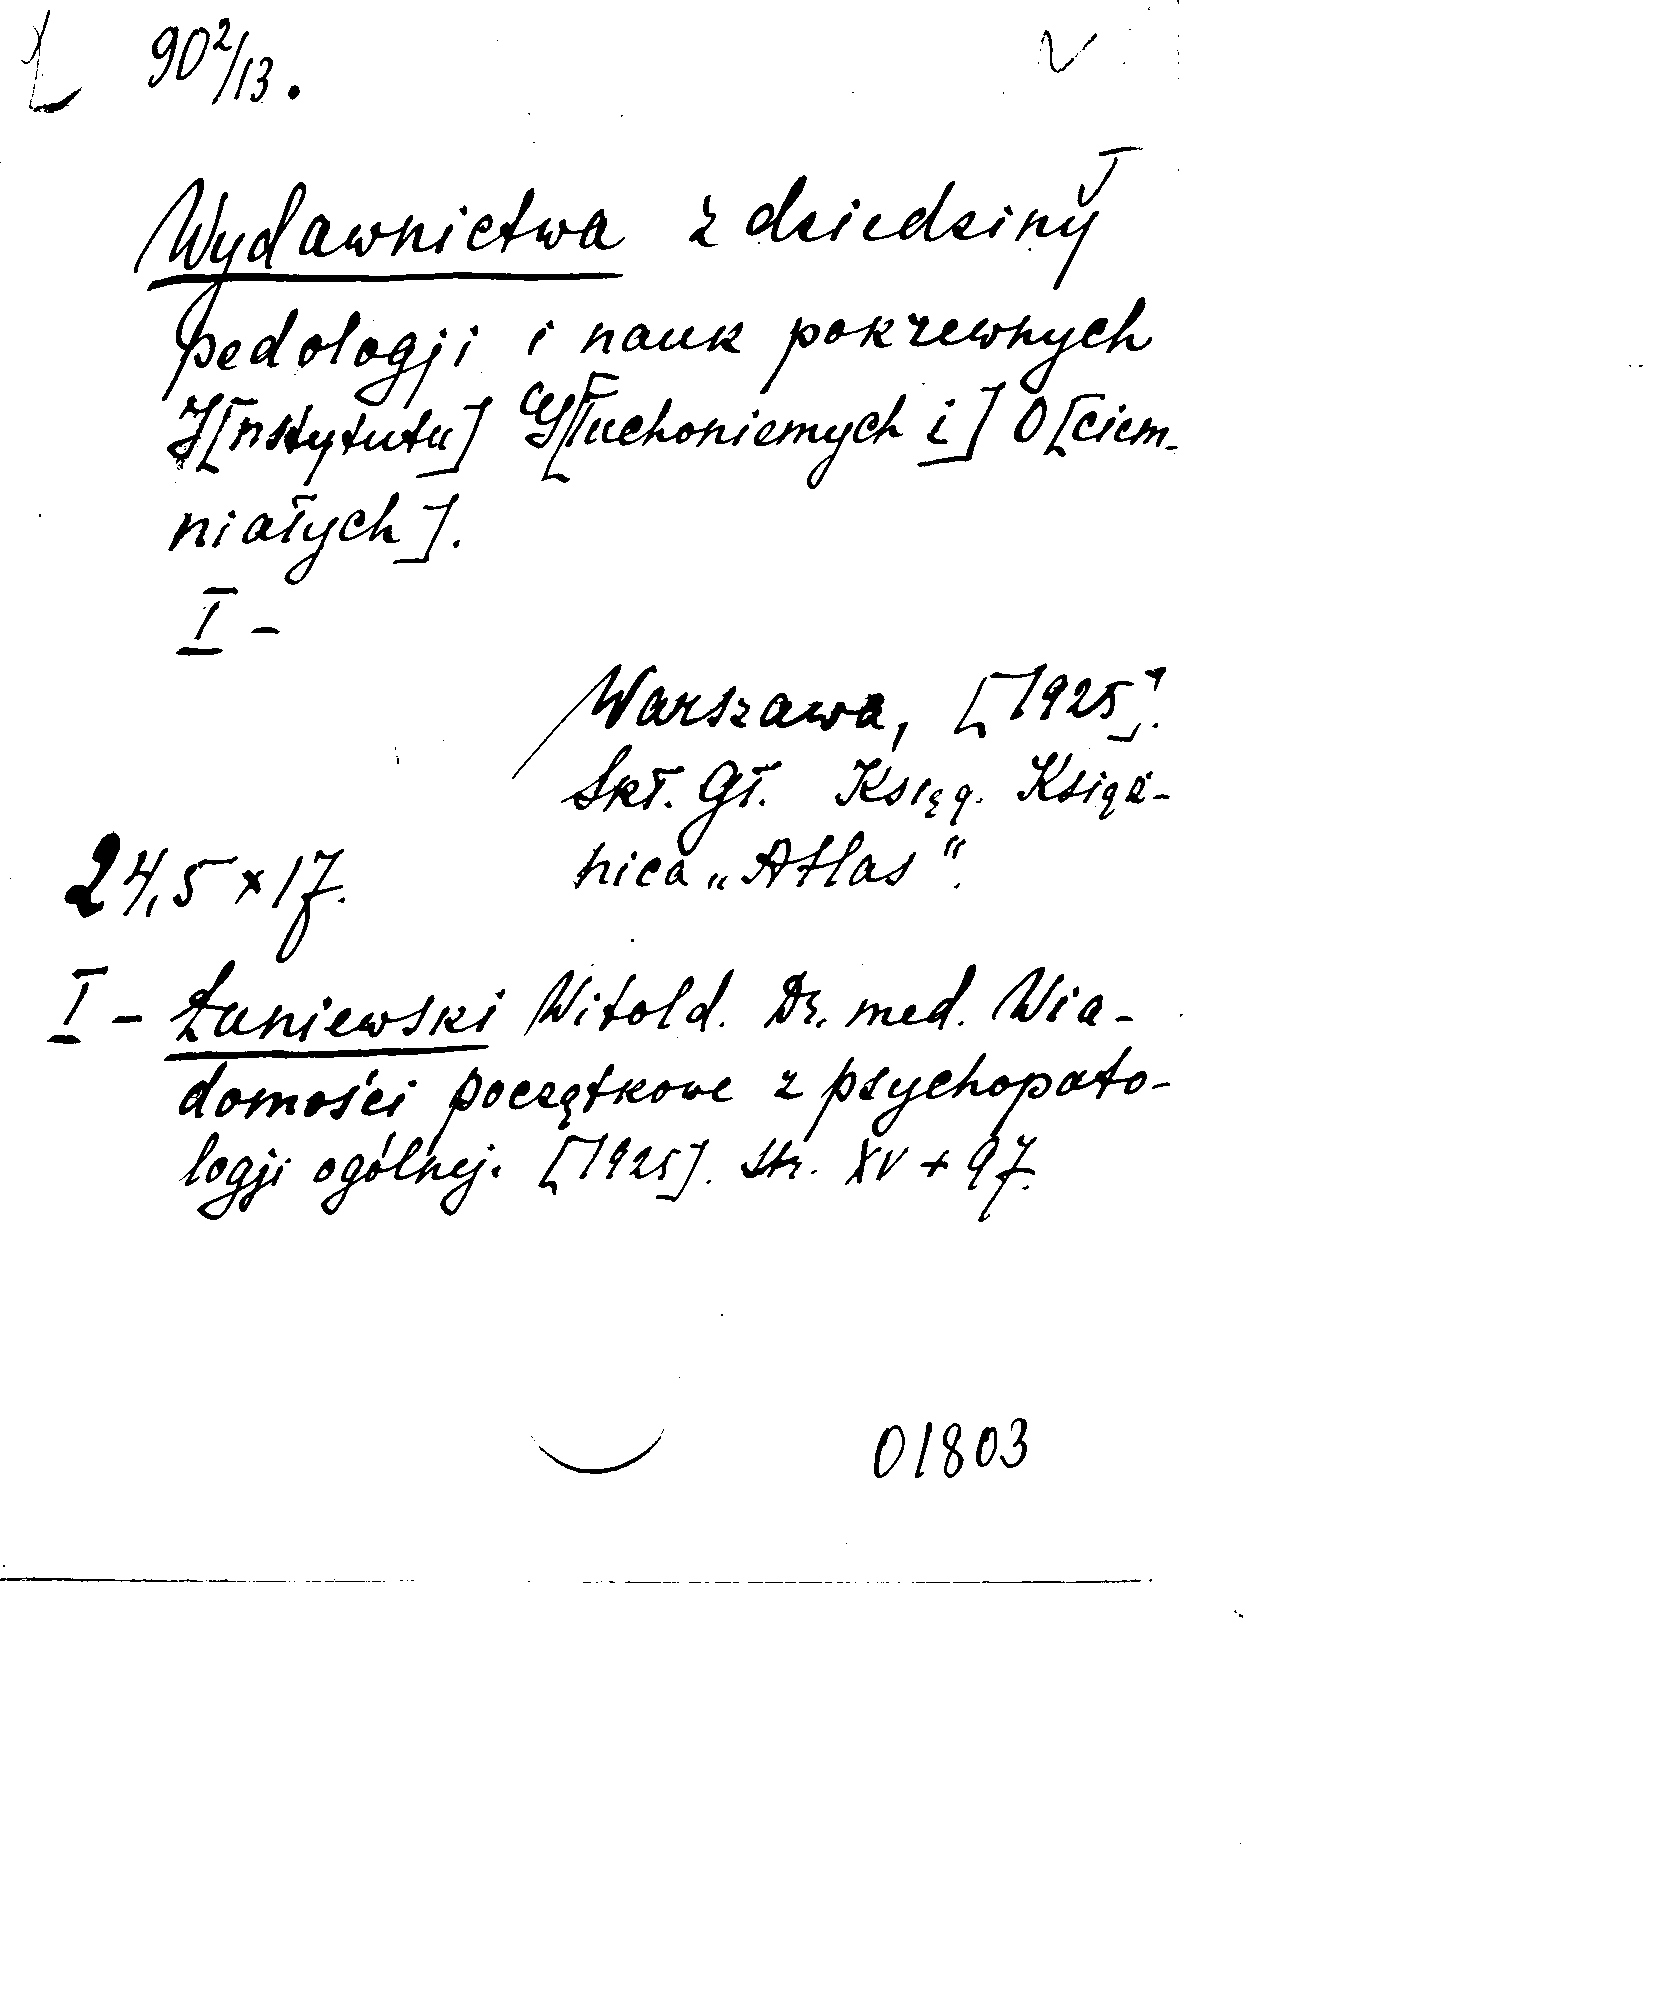 Ł 90²/13.
Wydawnictwa z dziedziny
pedologji i nauk pokrewnych
I[nstytutu] G[łuchoniemych i] O[ciem-
niałych].
I -
Warszawa, [1925].
Skł. Gł. Księg. Książ-
nica „Atlas".
24,5 x 17.
I - Łuniewski Witold. Dr. med. Wia-
domości początkowe z psychopato-
logji ogólnej. [1925]. str. XV + 97.
01803